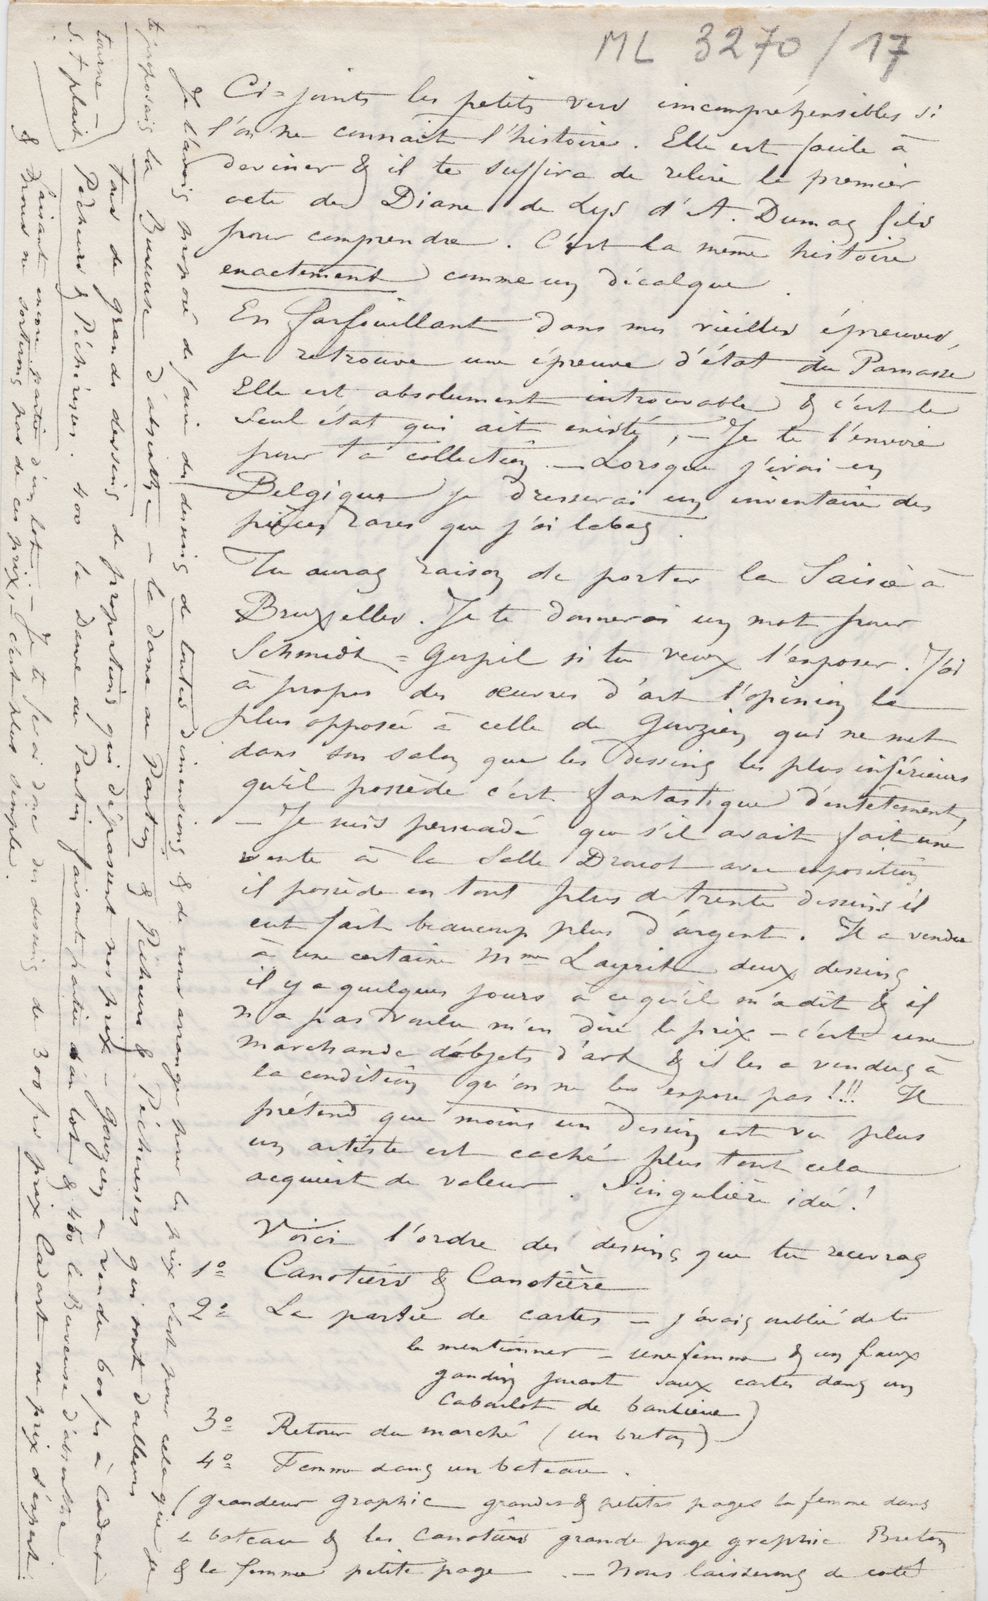 ML 3270/17
Ci=joints les petits vers incompréhensibles si
l'on ne connait l'histoire. Elle est facile à
deviner & il te suffira de relire le premier
acte de Diane de Lys d'A. Dumas fils
pour comprendre. C'est la même histoire
exactement comme un décalque.
En farfouillant dans mes vieilles épreuves,
je retrouve une épreuve d'état du Parnasse
Elle est absolument introuvable & c'est le
seul état qui ait existé, – Je te l'envoie
pour ta collection. – Lorsque j'irai en
Belgique je dresserai un inventaire des
pièces rares que j'ai labas.
Tu auras raison de porter la Saisie à
Bruxelles. Je te donnerai un mot pour
Schmidt = Goupil si tu veux l'exposer. J'ai
à propos des œuvres d'art l'opinion la
plus opposée à celle de Gouzien qui ne met
dans son salon que les dessins les plus inférieurs
qu'il possède c'est fantastique d'entêtement,
– Je suis persuadé que s'il avait fait une
vente à la Salle Drouot avec exposition
il possède en tout plus de trente dessins il
eut fait beaucoup plus d'argent. Il a vendu
à une certaine Mme deux dessins
il y a quelques jours à ce qu'il m'a dit & il
n'a pas voulu m'en dire le prix – c'est une
marchande d'objets d'art & il les a vendus à
la condition qu'on ne les expose pas!!! Il
prétend que moins un dessin est vu plus
un artiste est caché plus tout cela
acquiert de valeur. Singulière idée!
Voici l'ordre des dessins que tu recevras
1o Canotiers & Canotière
2o La partie de cartes – j'avais oublié de te
la mentionner – une femme & un faux
gandin jouant aux cartes dans un
caboulot de banlieue)
3o Retour du marché (un breton)
4o Femme dans un bateau.
(grandeur graphic grandes & petites pages la femme dans
le bateau & les canotiers grande page graphic Breton
& la femme petite page. – Nous laisserons de coté
tourne –
s. t. plait)
Je t'avais proposé de faire des dessins de toutes dimensions & de nous arranger pour les prix c'est pour cela que je
te proposais la Buveuse d'absinthe – la dame au Pantin & Pêcheurs & Pêcheuses qui sont d'ailleurs
tous de grands dessins de proportions qui dépassent nos prix – Gouzien a vendu 600 fs à Cadart
Pêcheurs & Pêcheuses. 400 la Dame au Pantin faisant partie d'un lot & 450 la Buveuse d'absinthe
faisant encore partie d'un lot. – Je te ferai donc des dessins de 300 fs prix Cadart ne prix d'expert
& nous ne sortirons pas de ces prix, – c'est plus simple.